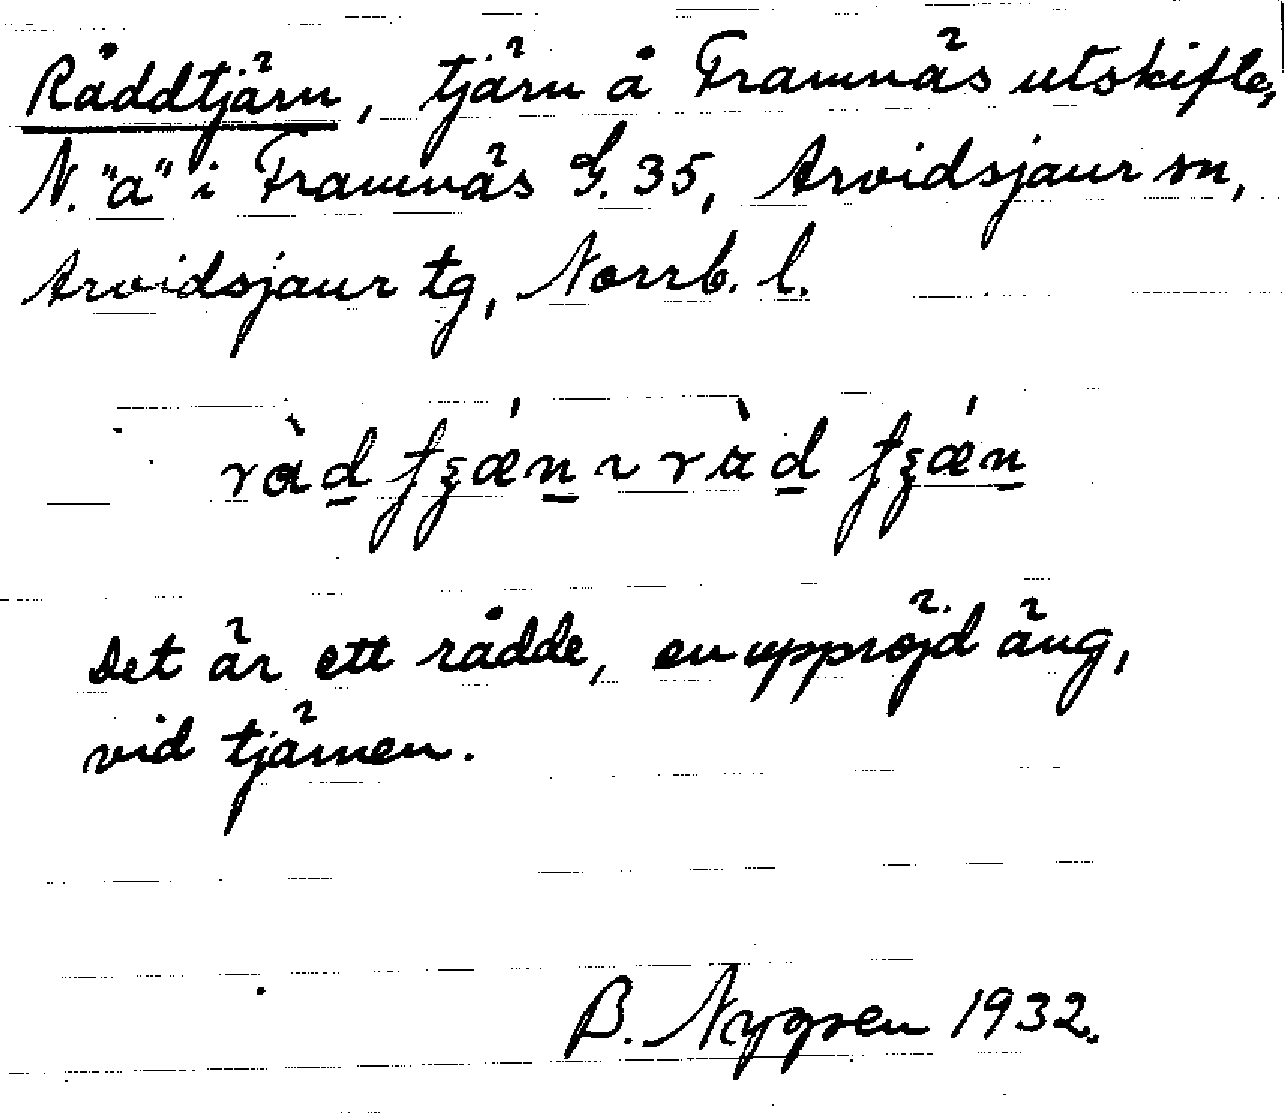 Råddtjärn, tjärn å Framnäs utskifte,
N. "a" i Framnäs S. 35, Arvidsjaur sn,
Arvidsjaur tg, Norrb. l.
Det är ett rådde, en uppröjd äng,
vid tjärnen.
B. Nygren 1932.